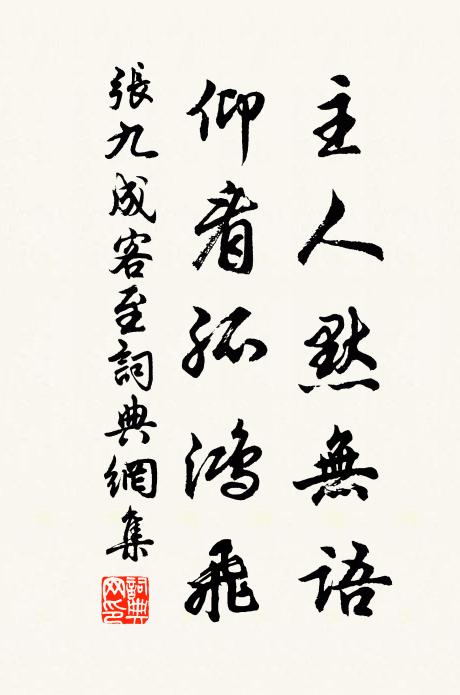 主人默無語
仰看孤鴻飛
張九成客至詞典網集
詞典網印